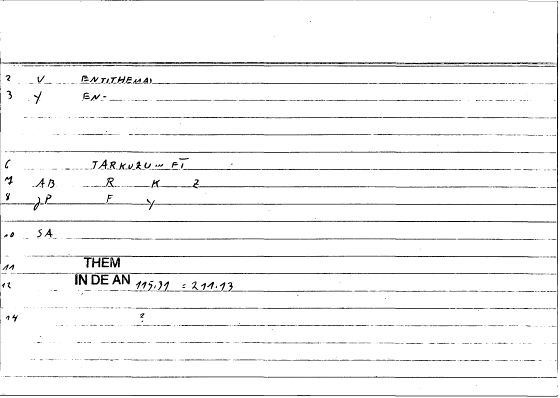 2 V ENTITHEMAI
3 Y EN-
6 TARKUZU... FĪ
7 AB R K Z
8 JP F Y
10 SA
11 THEM
12 IN DE AN 115.31 = 211.13
14 ?